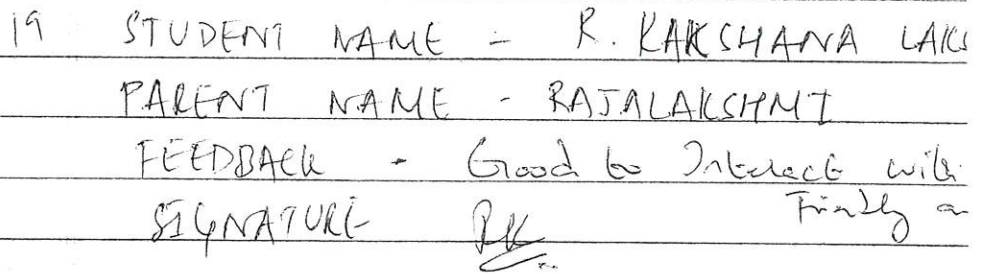 19 STUDENT NAME - R. KAKSHANA LAKS
PARENT NAME - RAJALAKSHMI
FEEDBACK - Good to Interact with
Friendly a
SIGNATURE